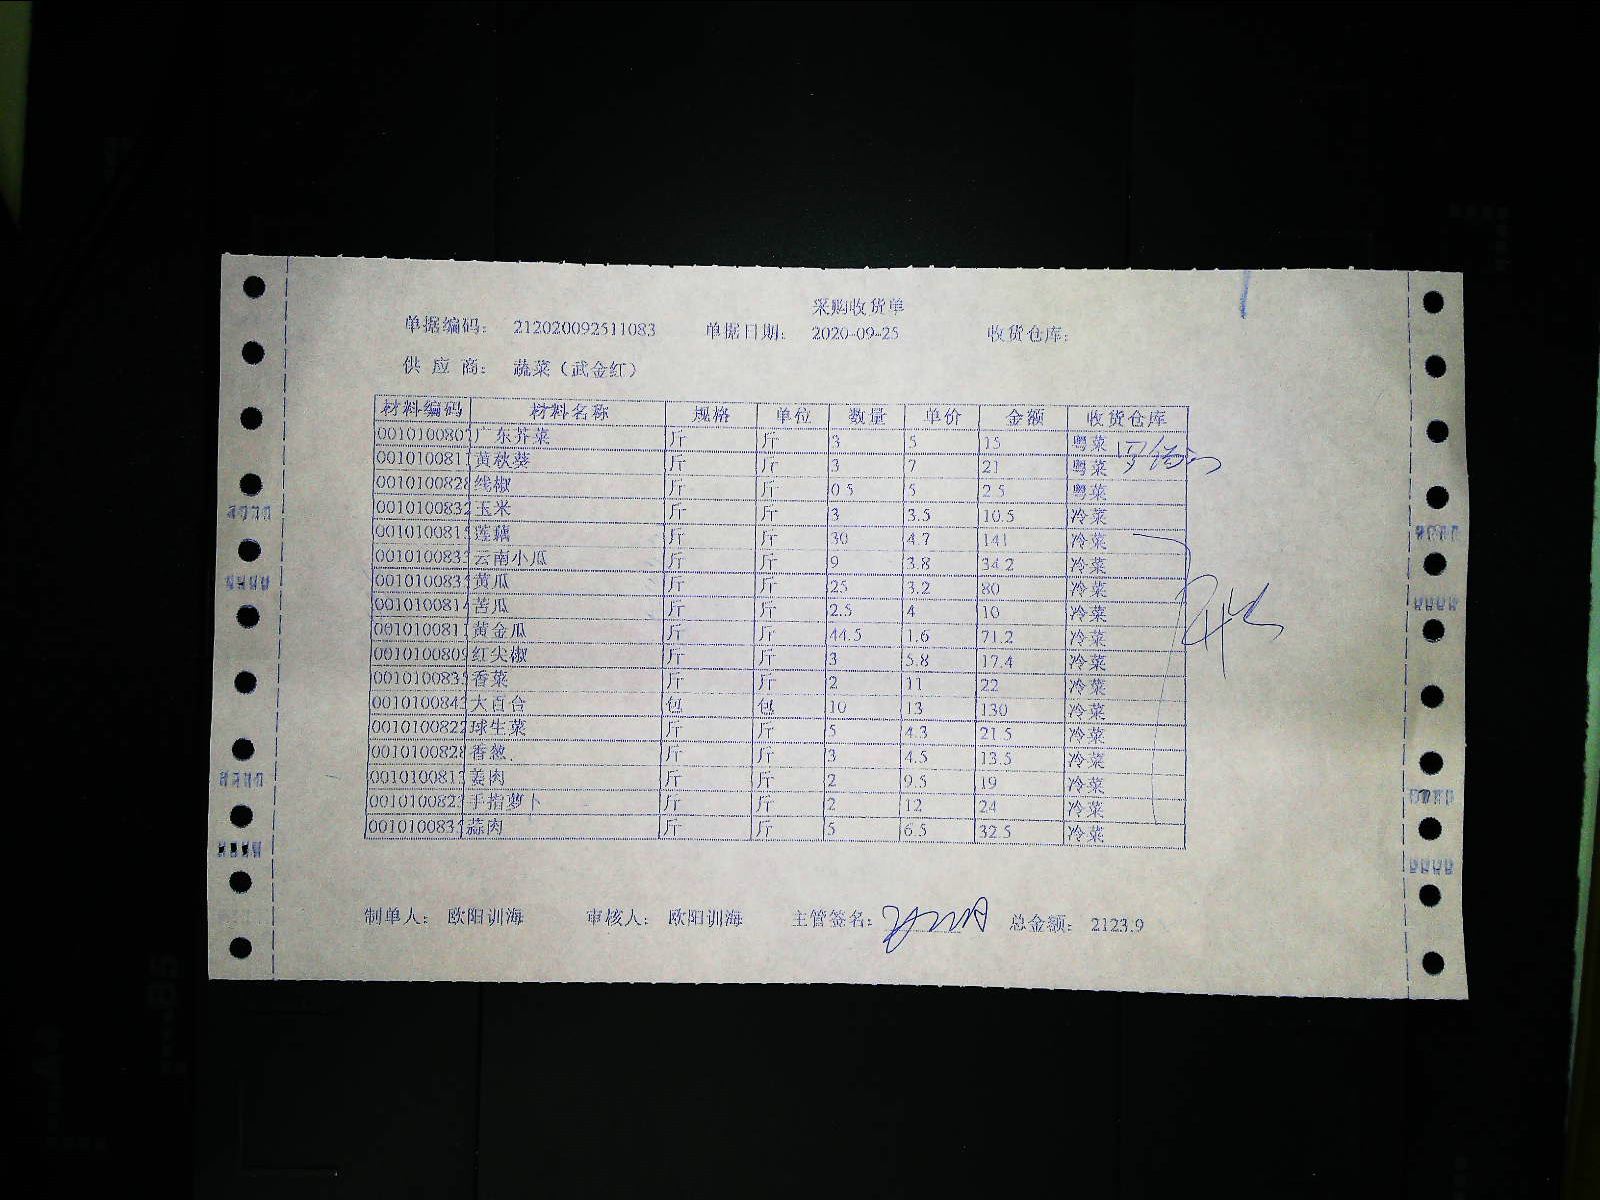 采购收货单
单据编码： 212020092511083 单据日期： 2020-09-25 收货仓库：
供 应 商： 蔬菜（武金红）
材料编码 材料名称 规格 单位 数量 单价 金额 收货仓库
001010080 广东芥菜 斤 斤 3 5 15 粤菜
0010100811 黄秋葵 斤 斤 3 7 21 粤菜
001010082 线椒 斤 斤 0.5 5 2.5 粤菜
0010100832 玉米 斤 斤 3 3.5 10.5 冷菜
001010081 莲藕 斤 斤 30 4.7 141 冷菜
001010083 云南小瓜 斤 斤 9 3.8 34.2 冷菜
001010083 黄瓜 斤 斤 25 3.2 80 冷菜
001010081 苦瓜 斤 斤 2.5 4 10 冷菜
001010081 黄金瓜 斤 斤 44.5 1.6 71.2 冷菜
001010080 红尖椒 斤 斤 3 5.8 17.4 冷菜
001010083 香菜 斤 斤 2 11 22 冷菜
001010084 大百合 包 包 10 13 130 冷菜
0010100822 球生菜 斤 斤 5 4.3 21.5 冷菜
001010082 香葱 斤 斤 3 4.5 13.5 冷菜
001010081 姜肉 斤 斤 2 9.5 19 冷菜
001010082 手指萝卜 斤 斤 2 12 24 冷菜
001010083 蒜肉 斤 斤 5 6.5 32.5 冷菜
制单人： 欧阳训海 审核人： 欧阳训海 主管签名： 总金额： 2123.9